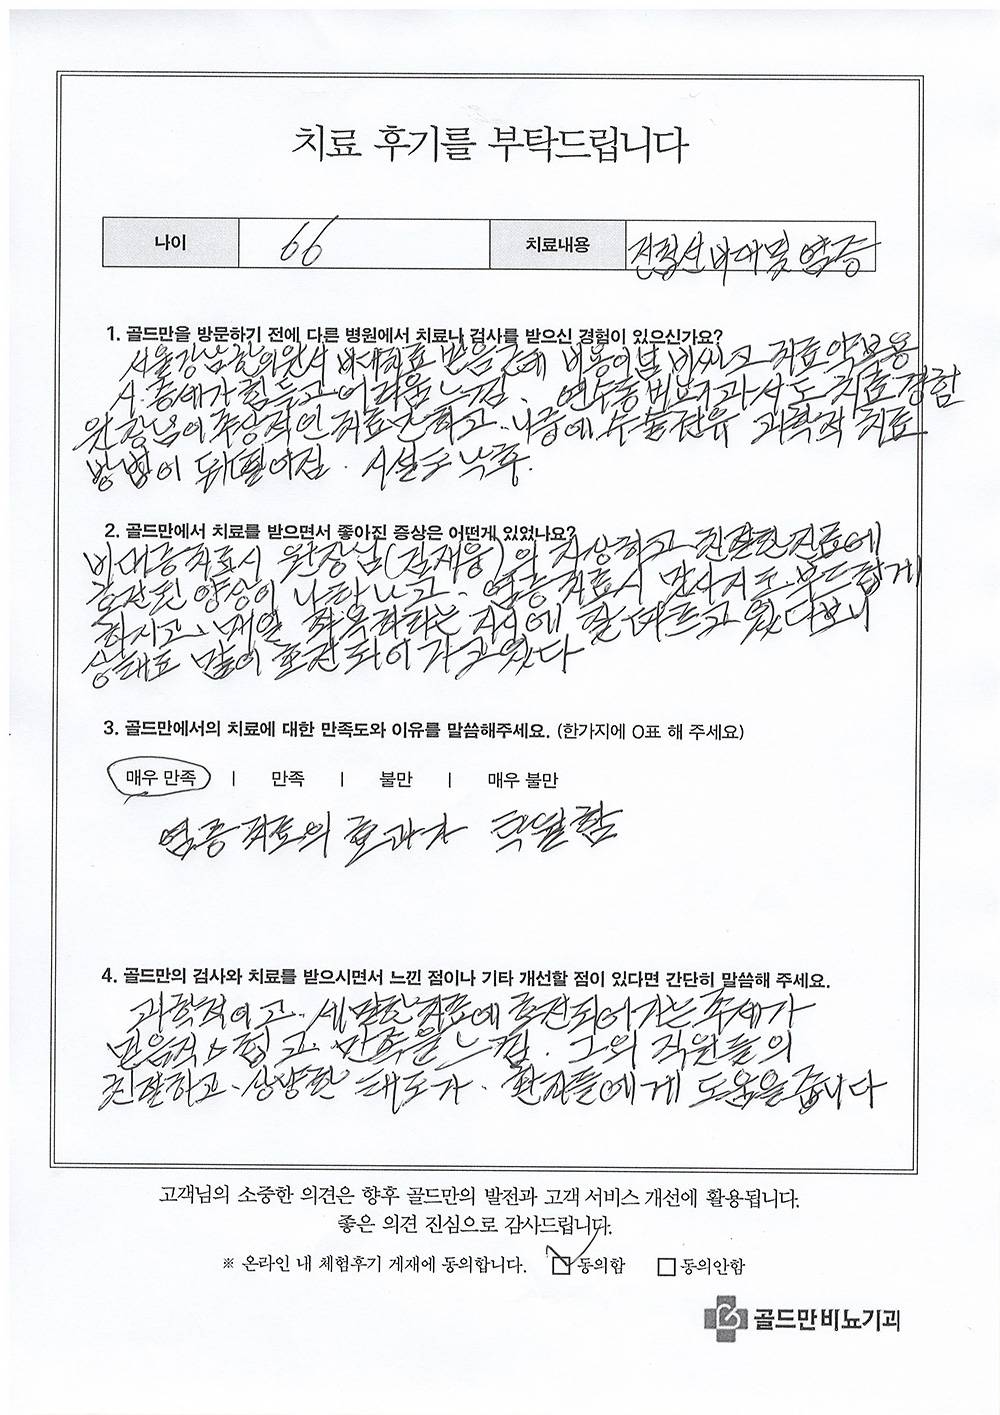 치료 후기를 부탁드립니다
나이 66 치료내용 전립선비대 및 염증
1. 골드만을 방문하기 전에 다른 병원에서 치료나 검사를 받으신 경험이 있으신가요?
서울강남한의원서 비대치료 받음근데 비용이넘 비싸고 치료약복용
시. 홍세가 힘들고 어려움 느낌. 연수동비뇨기과서도 치료경함
원장님이 추상적인 치료만하고. 나중에 수술권유 과학적 치료
방법이 뒤떨어짐. 시설도 낙후.
2. 골드만에서 치료를 받으면서 좋아진 증상은 어떤게 있었나요?
비대증치료시 원장님(김재웅)의 자상하고 친절한진료에
호전된 양상이 나타나고. 염증치료시 맛사지도. 부드럽게
하시고. 매일 좌욕하라는 지시에 잘 따르고 있다보니
상태도 많이 호전되어 가고있다
3. 골드만에서의 치료에 대한 만족도와 이유를 말씀해주세요. (한가지에 O표 해 주세요)
매우 만족 | 만족 | 불만 | 매우 불만
염증 치료의 효과가 탁월함
4. 골드만의 검사와 치료를 받으시면서 느낀 점이나 기타 개선할 점이 있다면 간단히 말씀해 주세요.
과학적이고. 세밀한 치료에 호전되어가는 추세가
믿음직스럽고. 만족을 느낌. 그외 직원들의
친절하고. 상냥한 태도가. 환자들에게 도움을줍니다
고객님의 소중한 의견은 향후 골드만의 발전과 고객 서비스 개선에 활용됩니다.
좋은 의견 진심으로 감사드립니다.
※ 온라인 내 체험후기 게재에 동의합니다. 동의함 동의안함
골드만비뇨기과